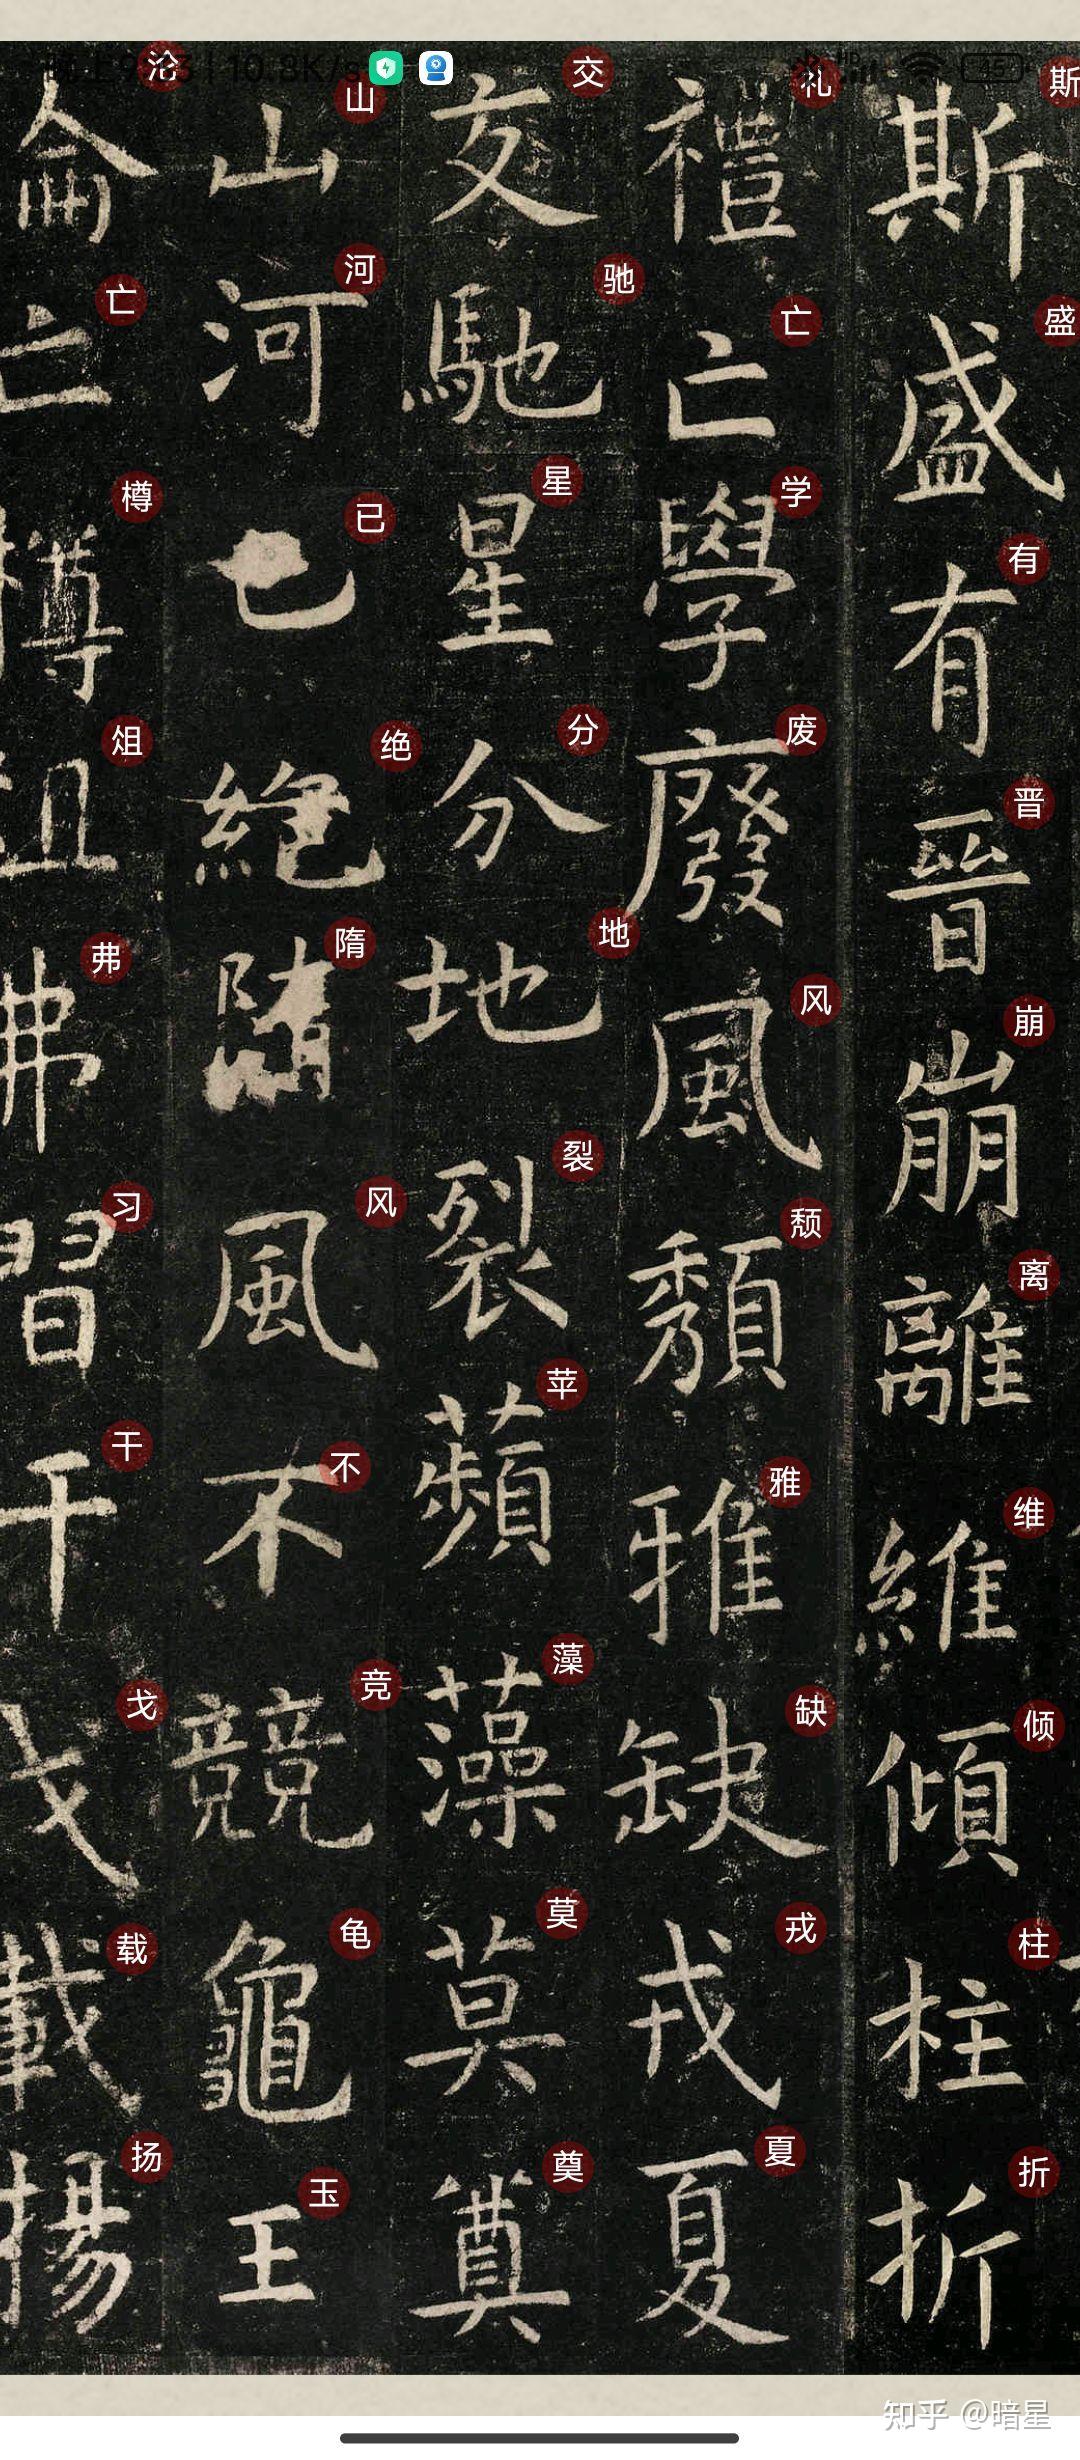 斯盛有晉崩離維傾柱折
禮亡學廢風頹雅缺戎夏
交馳星分地裂蘋藻莫奠
山河已絕隋風不競龜玉
淪亡樽俎弗習干戈載揚
斯盛有晋崩离维倾柱折
礼亡学废风颓雅缺戎夏
交驰星分地裂苹藻莫奠
山河已绝隋风不竞龟玉
沦亡樽俎弗习干戈载扬
10.8K/s
45
知乎 @暗星